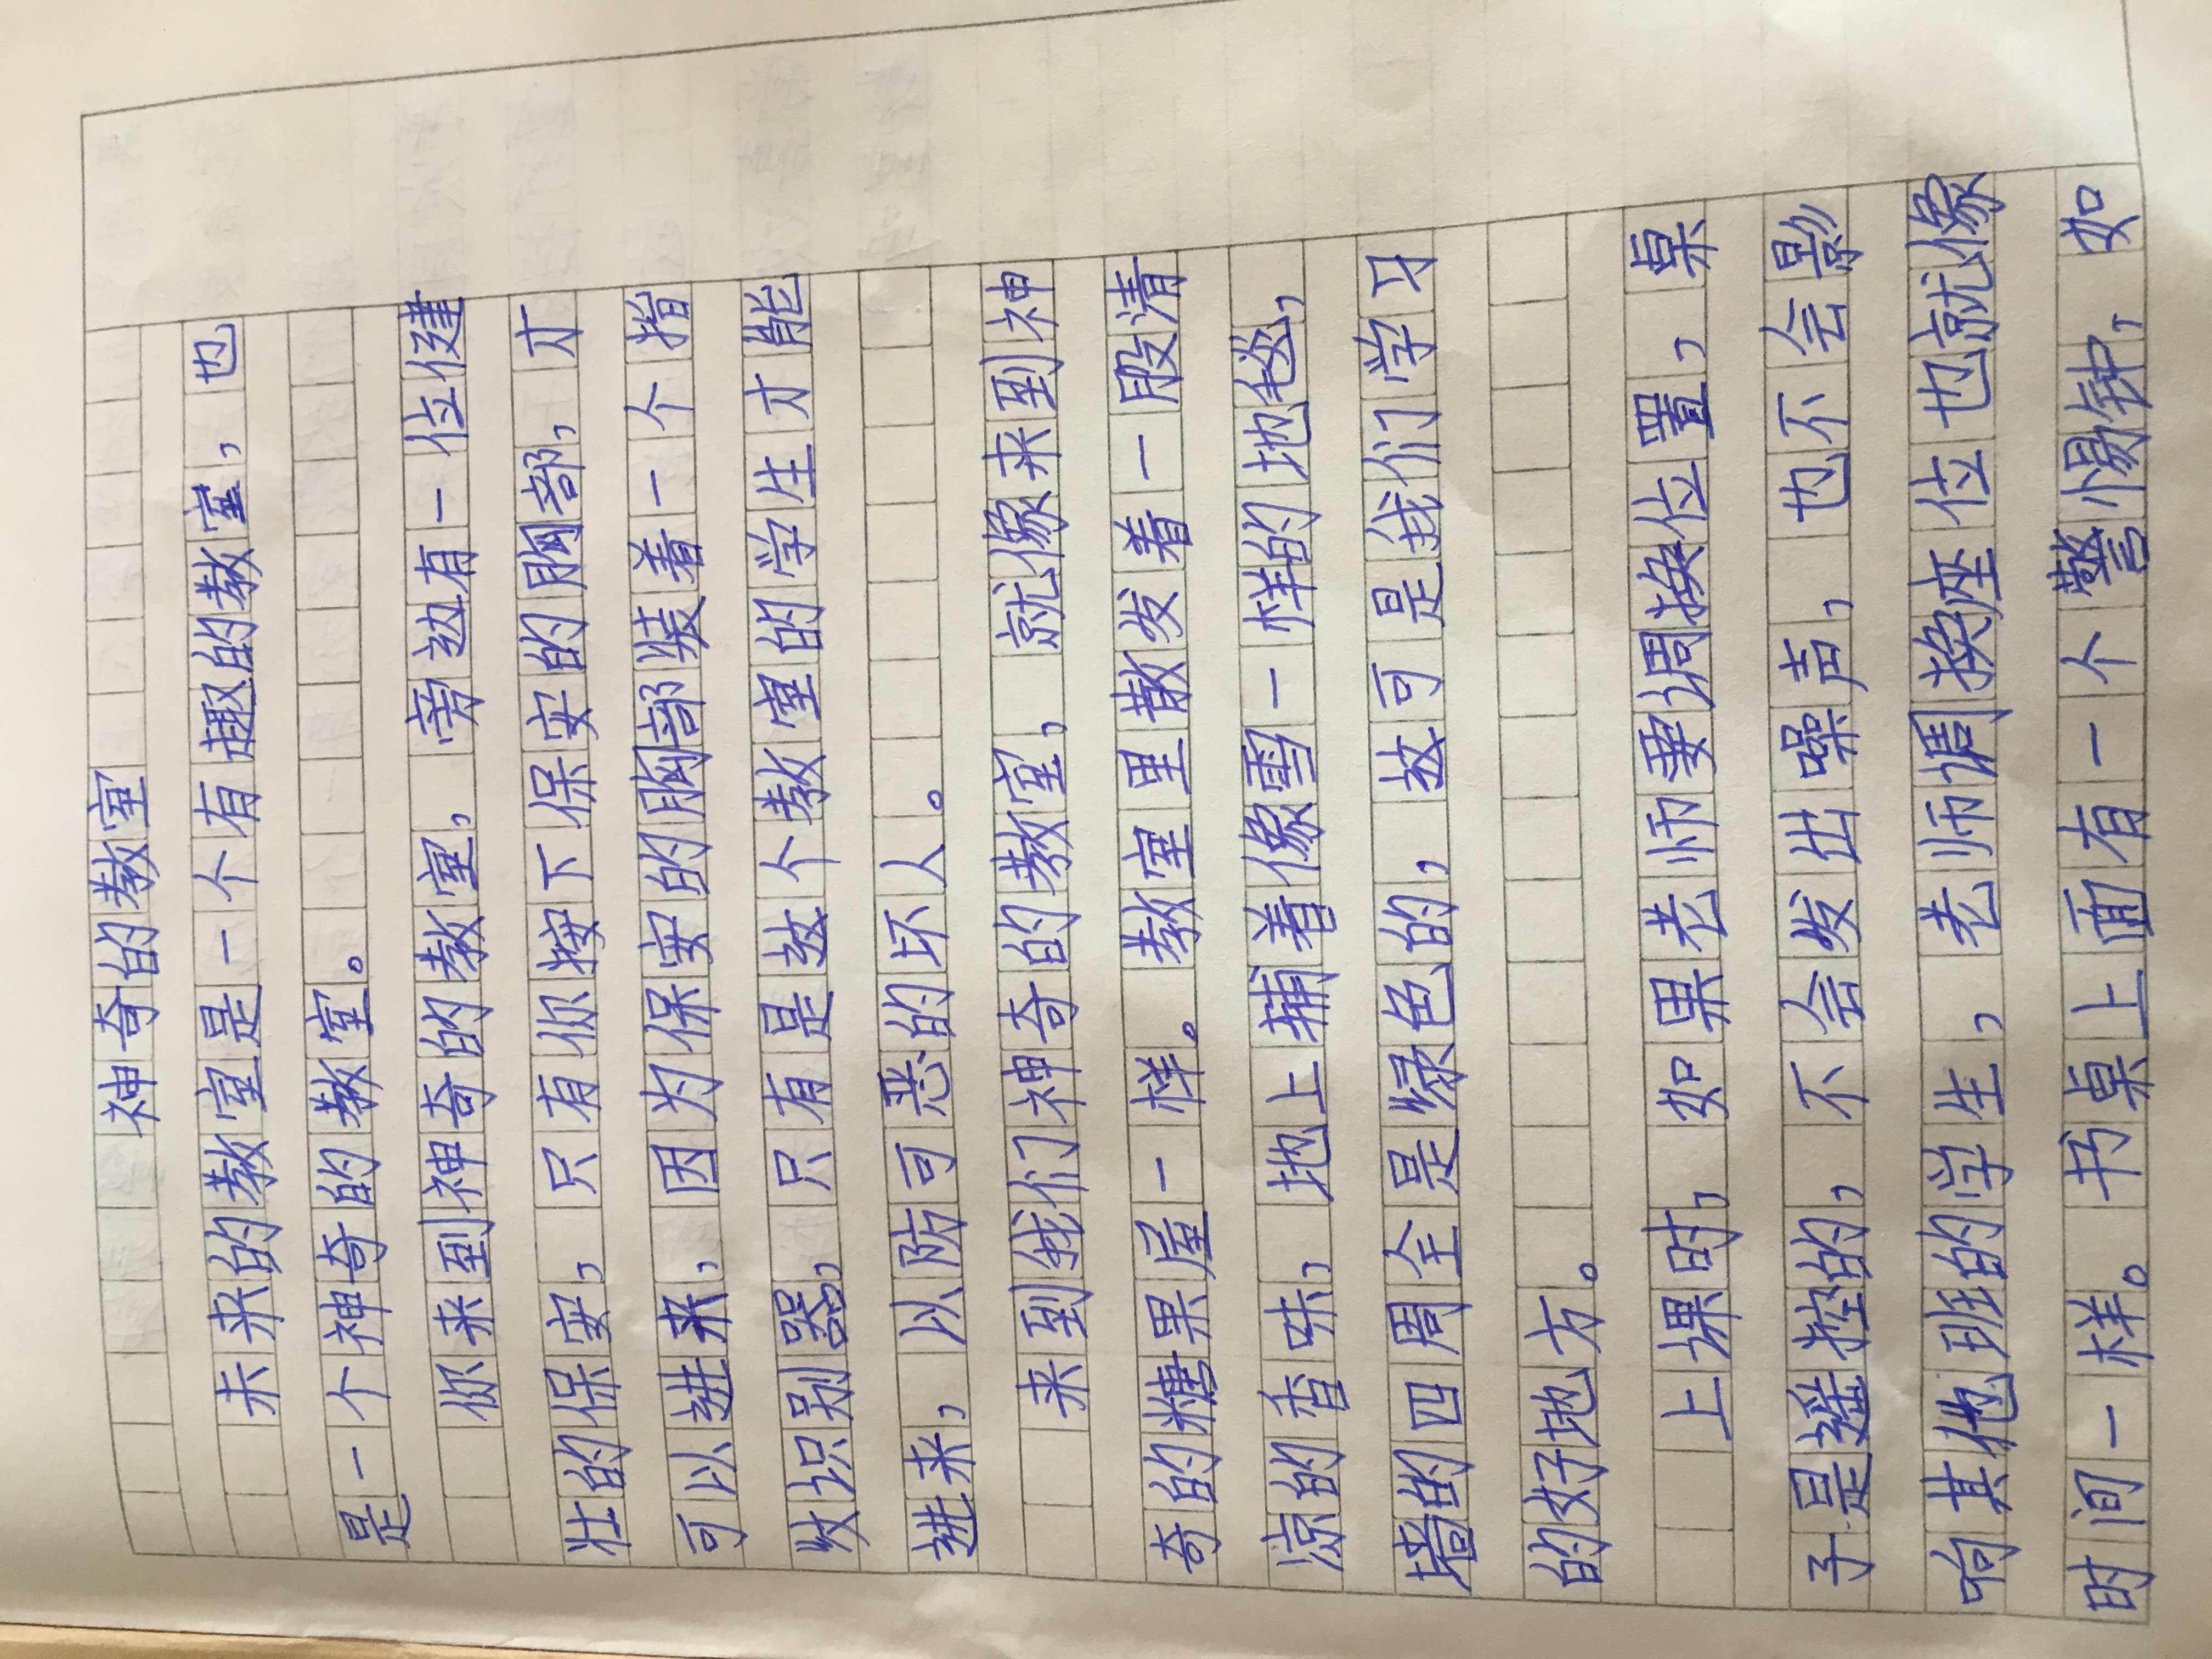 神奇的教室
未来的教室是一个有趣的教室，也
是一个神奇的教室。
你来到神奇的教室，旁边有一位健
壮的保安，只有你按下保安的胸部，才
可以进来，因为保安的胸部装着一个指
纹识别器，只有是这个教室的学生才能
进来，以防可恶的坏人。
来到我们神奇的教室，就像来到神
奇的糖果屋一样。教室里散发着一股清
凉的香味，地上辅着像雪一样的地毯，
墙的四周全是绿色的，这可是我们学习
的好地方。
上课时，如果老师要调换位置，桌
子是遥控的，不会发出噪声，也不会影
响其他班的学生，老师调换座位也就像
时间一样。书桌上面有一个警惕钟，如